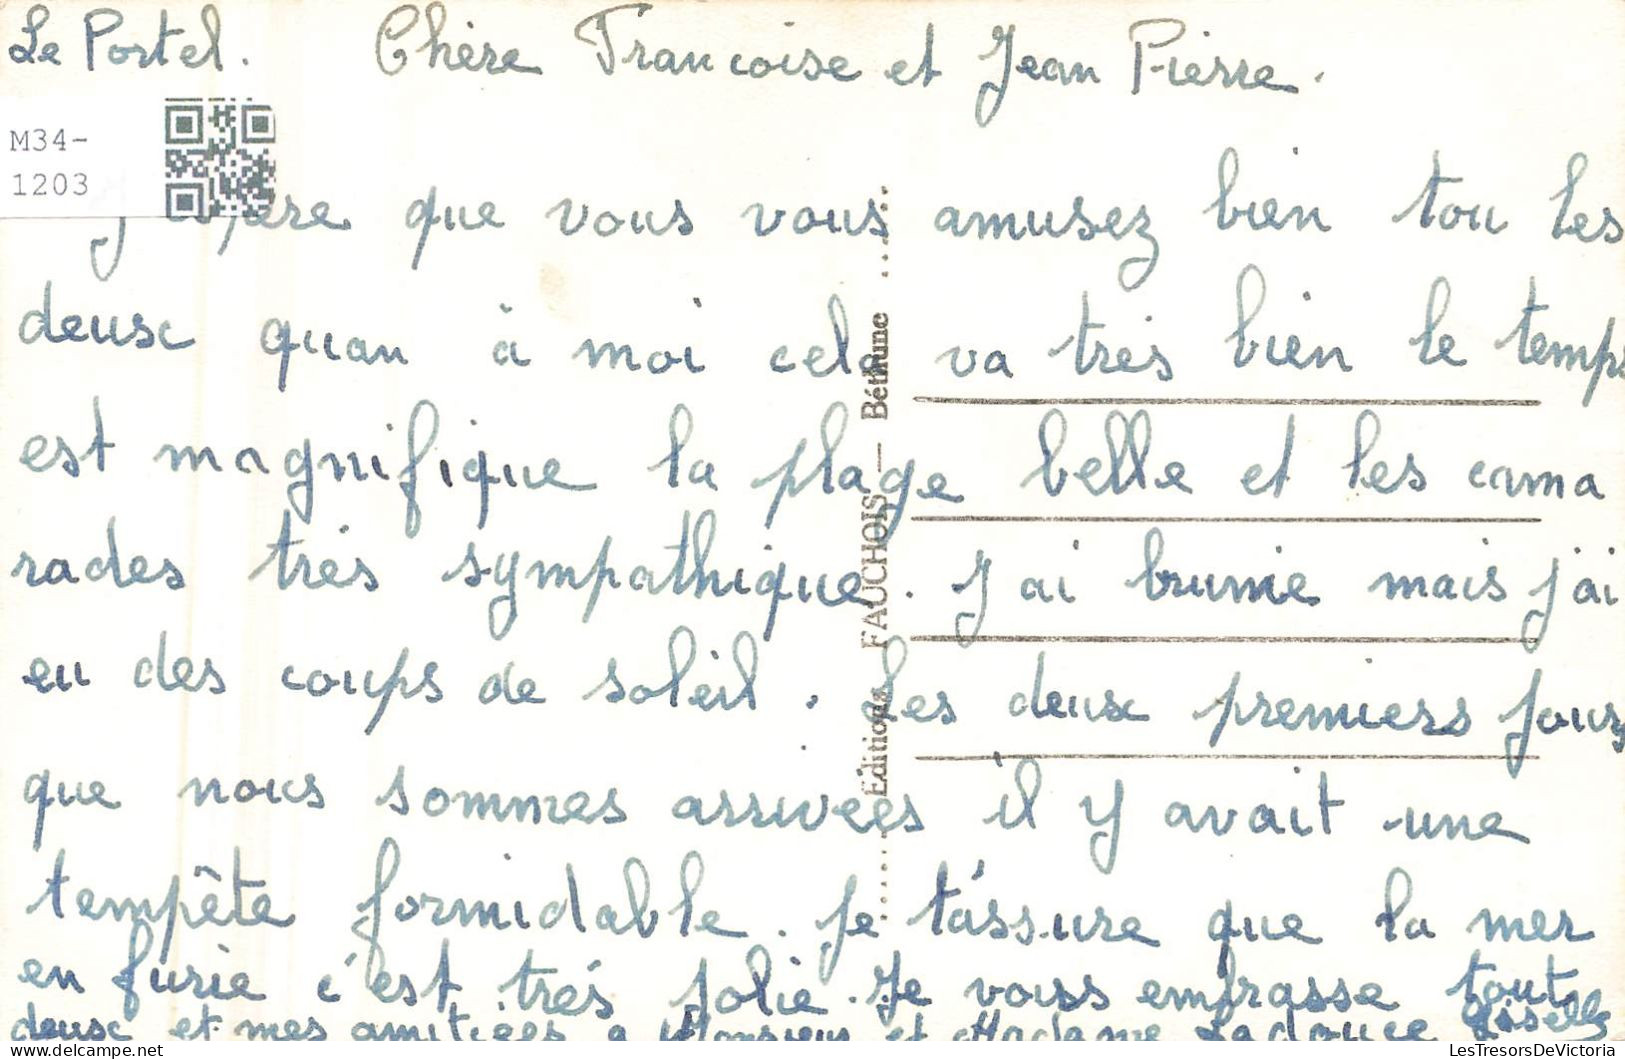 Le Portel. Chère Francoise et Jean Pierre.
M34-
1203
J'espère que vous vous amusez bien tou les
deusc quan à moi cela va très bien le temps
est magnifique la plage belle et les cama
rades très sympathique. J'ai brunie mais j'ai
eu des coups de soleil. Les deusc premiers jours
que nous sommes arrivées il y avait une
tempête formidable. je t'assure que la mer
en furie c'est trés jolie. Je vous embrasse tout
deusc et mes amitiées a Monsieur et Madame Ladouce Giselle
Editions FAUCHOIS — Béthune
LesTresorsDeVictoria
delcampe.net